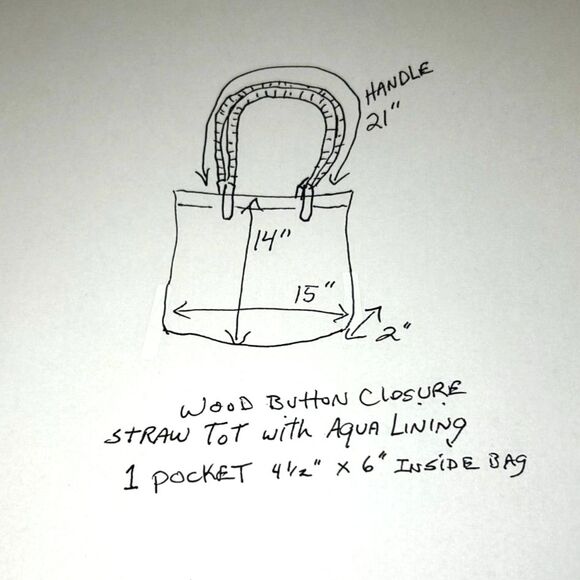 HANDLE
21"
14"
15"
2"
WOOD BUTTON CLOSURE
STRAW TOT with AQUA LINING
1 POCKET 4 1/2" X 6" INSIDE BAG